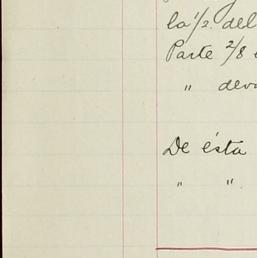 la 1/2. del
Parte 2/8
" deva
De ésta
" "